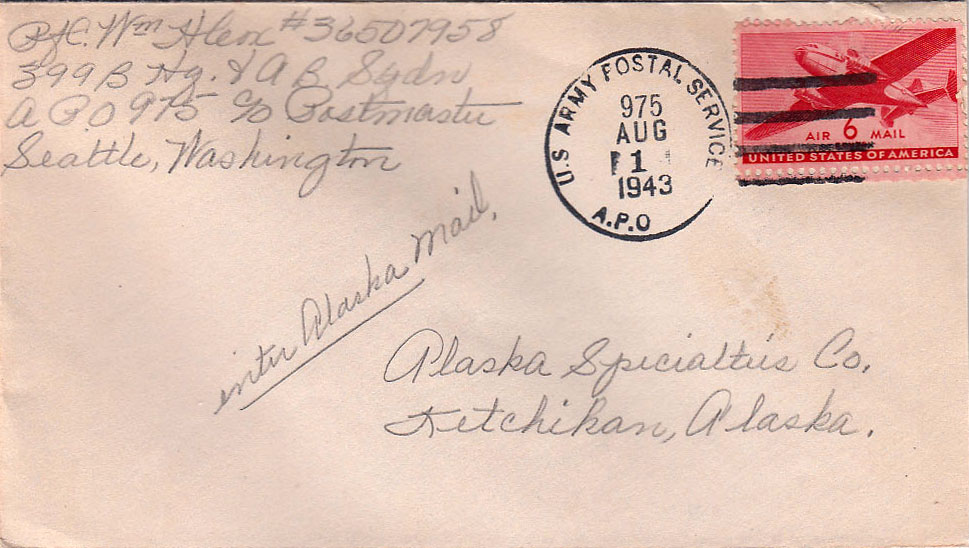 Pfc. Wm Hlem #36507958
399 B Hq. & A B Sqdn
A P.O 975 c/o Postmaster
Seattle, Washington
U.S ARMY POSTAL SERVICE
975
AUG
1
1943
A.P.O
AIR 6 MAIL
UNITED STATES OF AMERICA
inter Alaska Mail.
Alaska Specialties Co.
Ketchikan, Alaska.